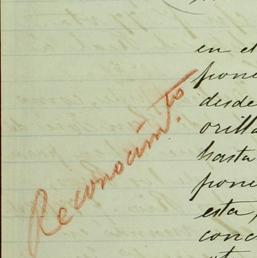 en el
pone
desde
orilla
hasta
pone
esta,
conc
Reconocim.to